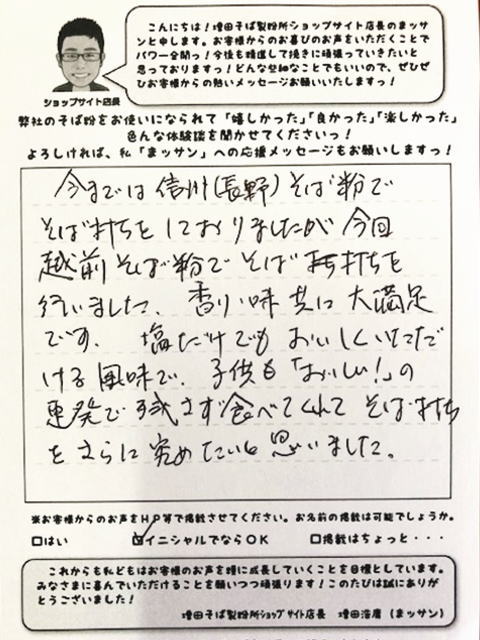 こんにちは！増田そば製粉所ショップサイト店長のマッサ
ンと申します。お客様からのお喜びのお声をいただくことで
パワー全開っ！今後も精進して挽きに頑張っていきたいと
思っておりますっ！どんな些細なことでもいいので、ぜひぜ
ひお客様からの熱いメッセージお願いいたしますっ！
ショップサイト店長
弊社のそば粉をお使いになられて「嬉しかった」「良かった」「楽しかった」
色んな体験談を聞かせてくださいっ！
よろしければ、私「まッサン」への応援メッセージもお願いしますっ！
今までは信州(長野)そば粉で
そば打ちをしておりましたが今回
越前そば粉でそば打ちを
行いました、香り味共に大満足
です、塩だけでもおいしくいただ
ける風味で、子供も「おいしい！」の
連発で残さず食べてくれてそば打ち
をさらに究めたいと思いました。
※お客様からのお声をHP等で掲載させてください。お名前の掲載は可能でしょうか。
□はい ☑イニシャルでならOK □掲載はちょっと・・・
これからも私どもはお客様のお声を糧に成長していくことを目標としています。
みなさまに喜んでいただけることを願いつつ頑張ります！このたびは誠にありが
とうございました！
増田そば製粉所ショップサイト店長 増田浩庸（まッサン）